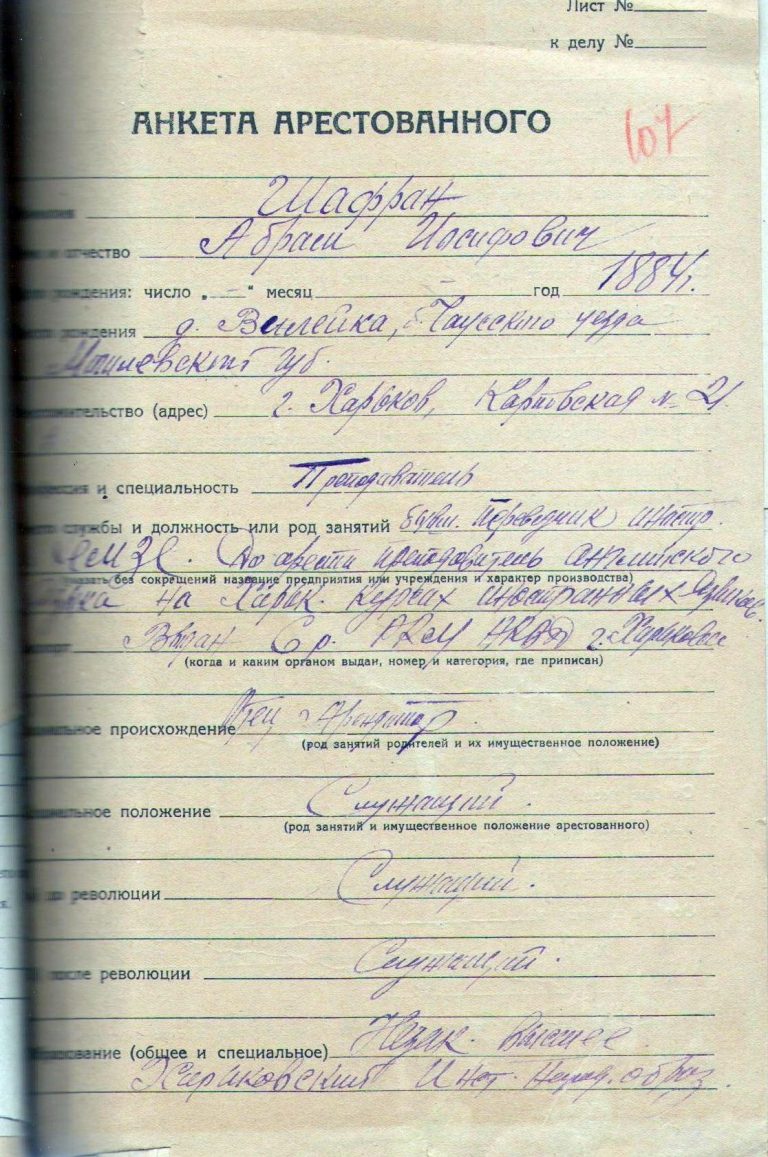 Лист №
к делу №
АНКЕТА АРЕСТОВАННОГО
107
Шафран
отчество Абрам Иосифович
рождения: число „ — “ месяц — год 1884 г.
рождения д. Вилейка, Чаусского уезда
Могилевской губ.
(адрес) г. Харьков, № 21
и специальность Преподаватель
службы и должность или род занятий бывш.
ХЭМЗ. До ареста преподаватель английского
указать без сокращений название предприятия или учреждения и характер производства)
языка на Харьк. курсах иностранных языков.
Выдан РКМ НКВД г. Харькова
(когда и каким органом выдан, номер и категория, где приписан)
происхождение Отец Арендатор
(род занятий родителей и их имущественное положение)
положение Служащий.
(род занятий и имущественное положение арестованного)
до революции Служащий.
после революции Служащий.
(общее и специальное) Незак. высшее
Харьковский Инст. народ. образ.